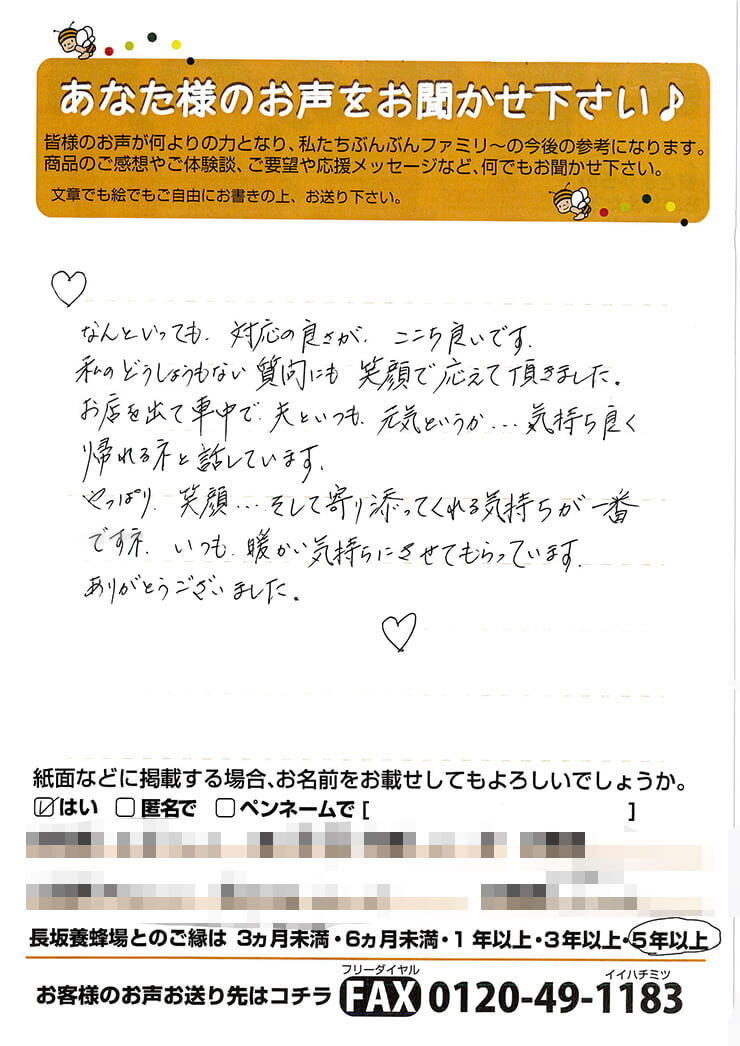 あなた様のお声をお聞かせ下さい♪
皆様のお声が何よりの力となり、私たちぶんぶんファミリ〜の今後の参考になります。
商品のご感想やご体験談、ご要望や応援メッセージなど、何でもお聞かせ下さい。
文章でも絵でもご自由にお書きの上、お送り下さい。
なんといっても、対応の良さが、ここち良いです。
私のどうしようもない質問にも笑顔で応えて頂きました。
お店を出て車中で、夫といつも、元気というか…気持ち良く
帰れるネと話しています。
やっぱり、笑顔…そして寄り添ってくれる気持ちが一番
ですネ。いつも、暖かい気持ちにさせてもらっています。
ありがとうございました。
紙面などに掲載する場合、お名前をお載せしてもよろしいでしょうか。
☑はい □匿名で □ペンネームで [ ]
長坂養蜂場とのご縁は 3ヵ月未満・6ヵ月未満・1年以上・3年以上・5年以上
フリーダイヤル イイハチミツ
お客様のお声お送り先はコチラ FAX 0120-49-1183